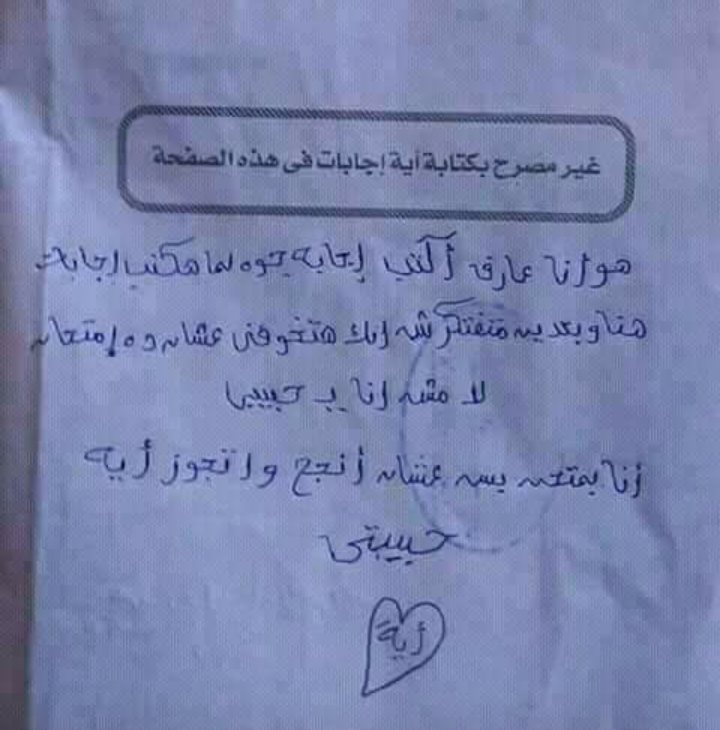 غير مصرح بكتابة أية إجابات فى هذه الصفحة
هو أنا عارف أكتب إجابه جوه لما هكتب إجابات
هنا وبعدين متفتكرش إنك هتخوفنى عشان ده إمتحان
لا مش أنا يا حبيبى
أنا بمتحن بس عشان أنجح واتجوز أية
حبيبتى
أية